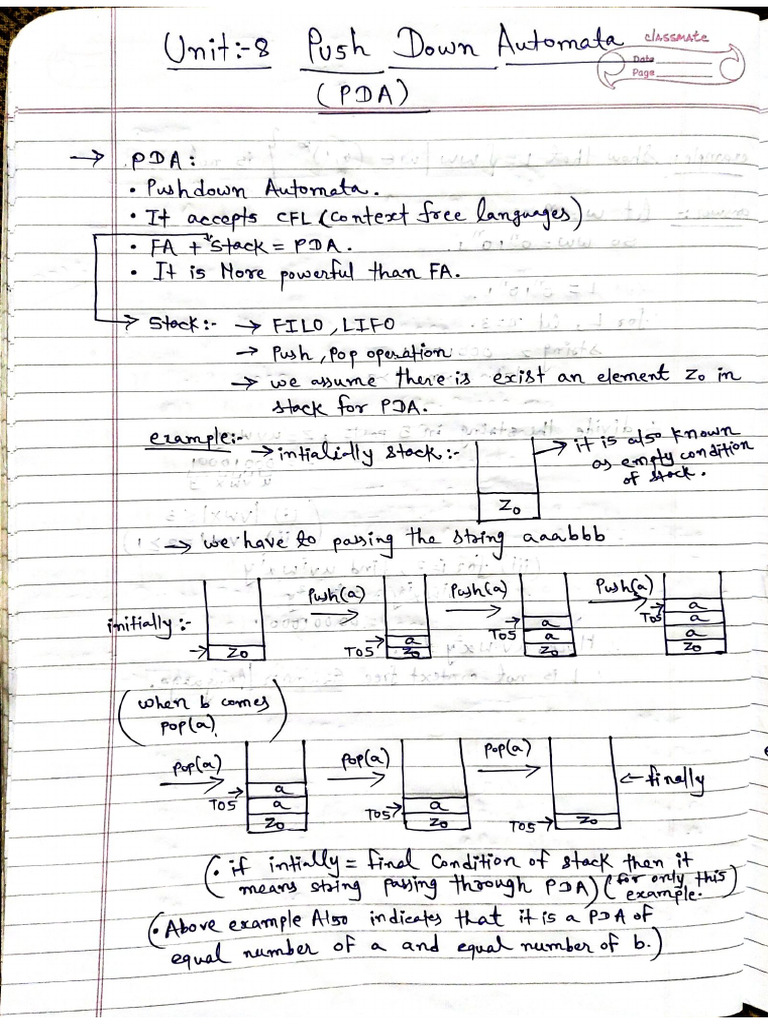 Unit:-8 Push Down Automata
(PDA)
classmate
Date
Page
→ PDA:
• Pushdown Automata.
• It accepts CFL (Context free languages)
• FA + Stack = PDA.
• It is More powerful than FA.
→ Stack:- → FILO, LIFO
→ Push, Pop operation
→ we assume there is exist an element Z0 in
stack for PDA.
example:- → intialidly stack:-
Z0
→ it is also known
as empty condition
of stack.
→ we have to passing the string aaabbb
initially:- → Z0
Push(a) → TOS → a Z0
Push(a) → TOS → a a Z0
Push(a) → TOS → a a a Z0
(when b comes
pop(a))
pop(a) → TOS → a a Z0
pop(a) → TOS → a Z0
pop(a) → TOS → Z0 ← finally
(• if intially = final Condition of stack then it
means string passing through PDA) (for only this
example.)
(• Above example Also indicates that it is a PDA of
equal number of a and equal number of b.)